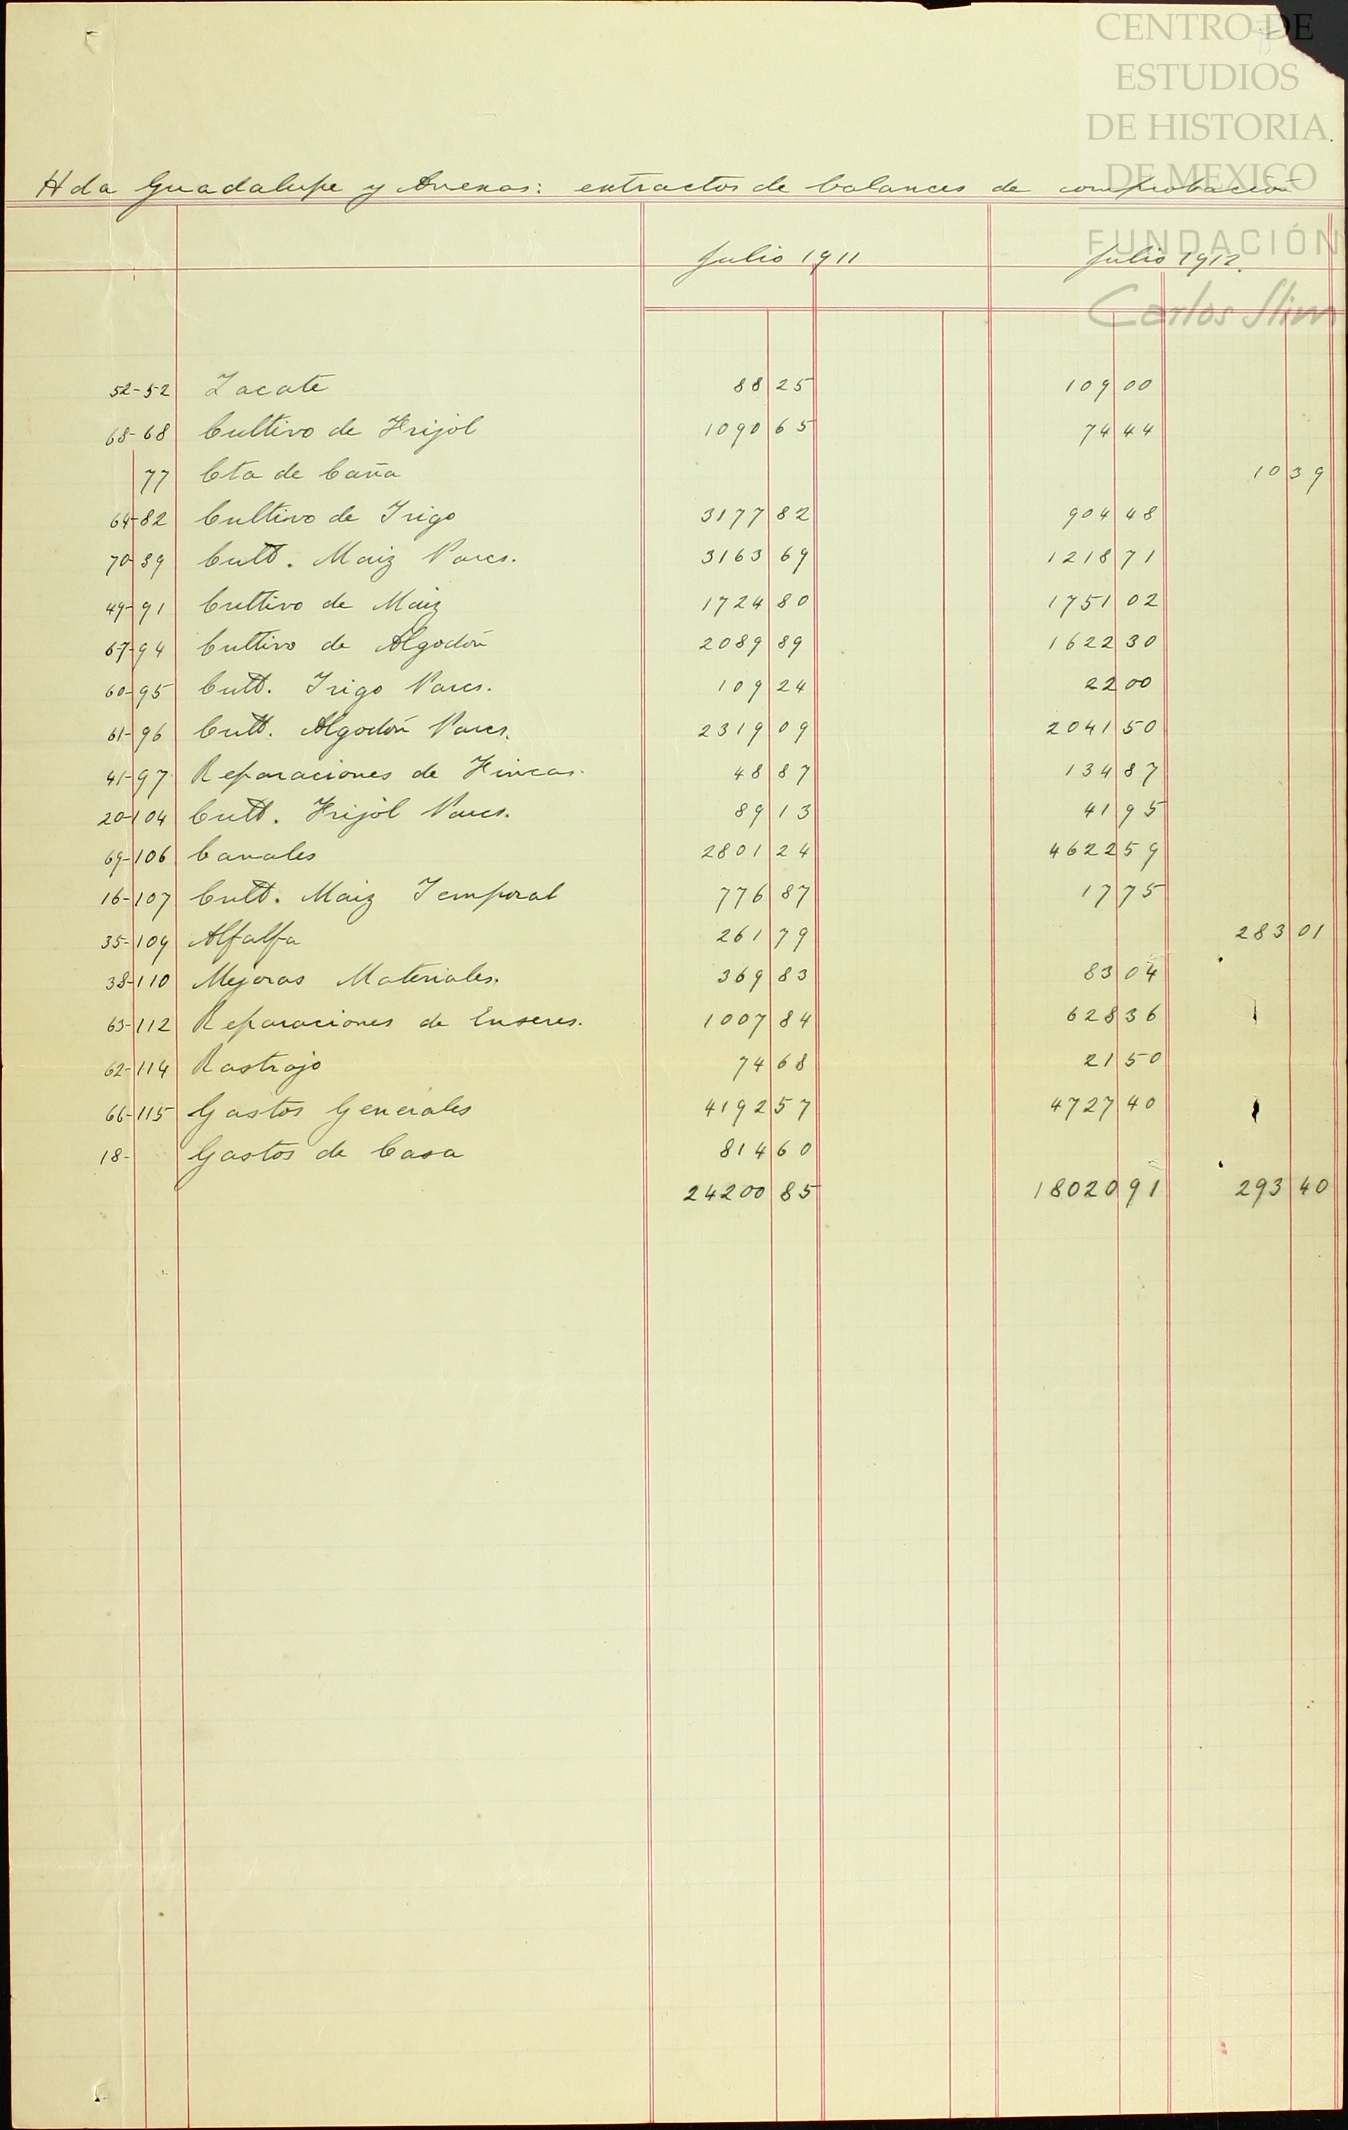 CENTRO DE
ESTUDIOS
DE HISTORIA
DE MEXICO
FUNDACIÓN
Carlos Slim
Hda Guadalupe y Avenas: extractos de balances de comprobación
Julio 1911 Julio 1912.
52-52 Zacate 88 25 109 00
68-68 Cultivo de Frijol 1090 65 74 44
77 Cta de Caña 10 39
64-82 Cultivo de Trigo 3177 82 904 48
70-89 Cult. Maiz Parcs. 3163 69 1218 71
49-91 Cultivo de Maiz 1724 80 1751 02
67-94 Cultivo de Algodón 2089 89 1622 30
60-95 Cult. Trigo Parcs. 109 24 22 00
61-96 Cult. Algodón Parcs. 2319 09 2041 50
41-97 Reparaciones de Fincas. 48 87 134 87
20-104 Cult. Frijol Parcs. 89 13 41 95
69-106 Canales 2801 24 4622 59
16-107 Cult. Maiz Temporal 776 87 17 75
35-109 Alfalfa 261 79 283 01
38-110 Mejoras Materiales. 369 83 83 04
63-112 Reparaciones de Enseres. 1007 84 628 36
62-114 Rastrojo 74 68 21 50
66-115 Gastos Generales 4192 57 4727 40
18- Gastos de Casa 814 60
24200 85 18020 91 293 40